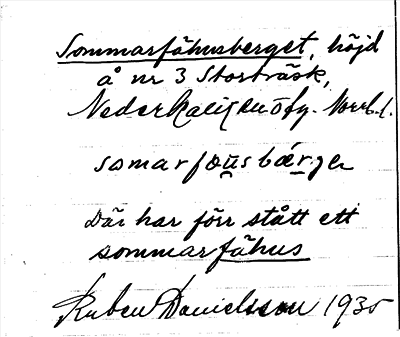 Sommarfähusberget, höjd
å nr 3 Storträsk,
Nederkalix sn ö fg. Norrb. l.
somarfæusbǽrjen
Där har förr stått ett
sommarfähus
Ruben Danielsson 1935